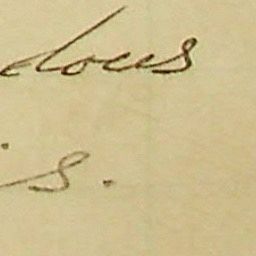 dous
s.